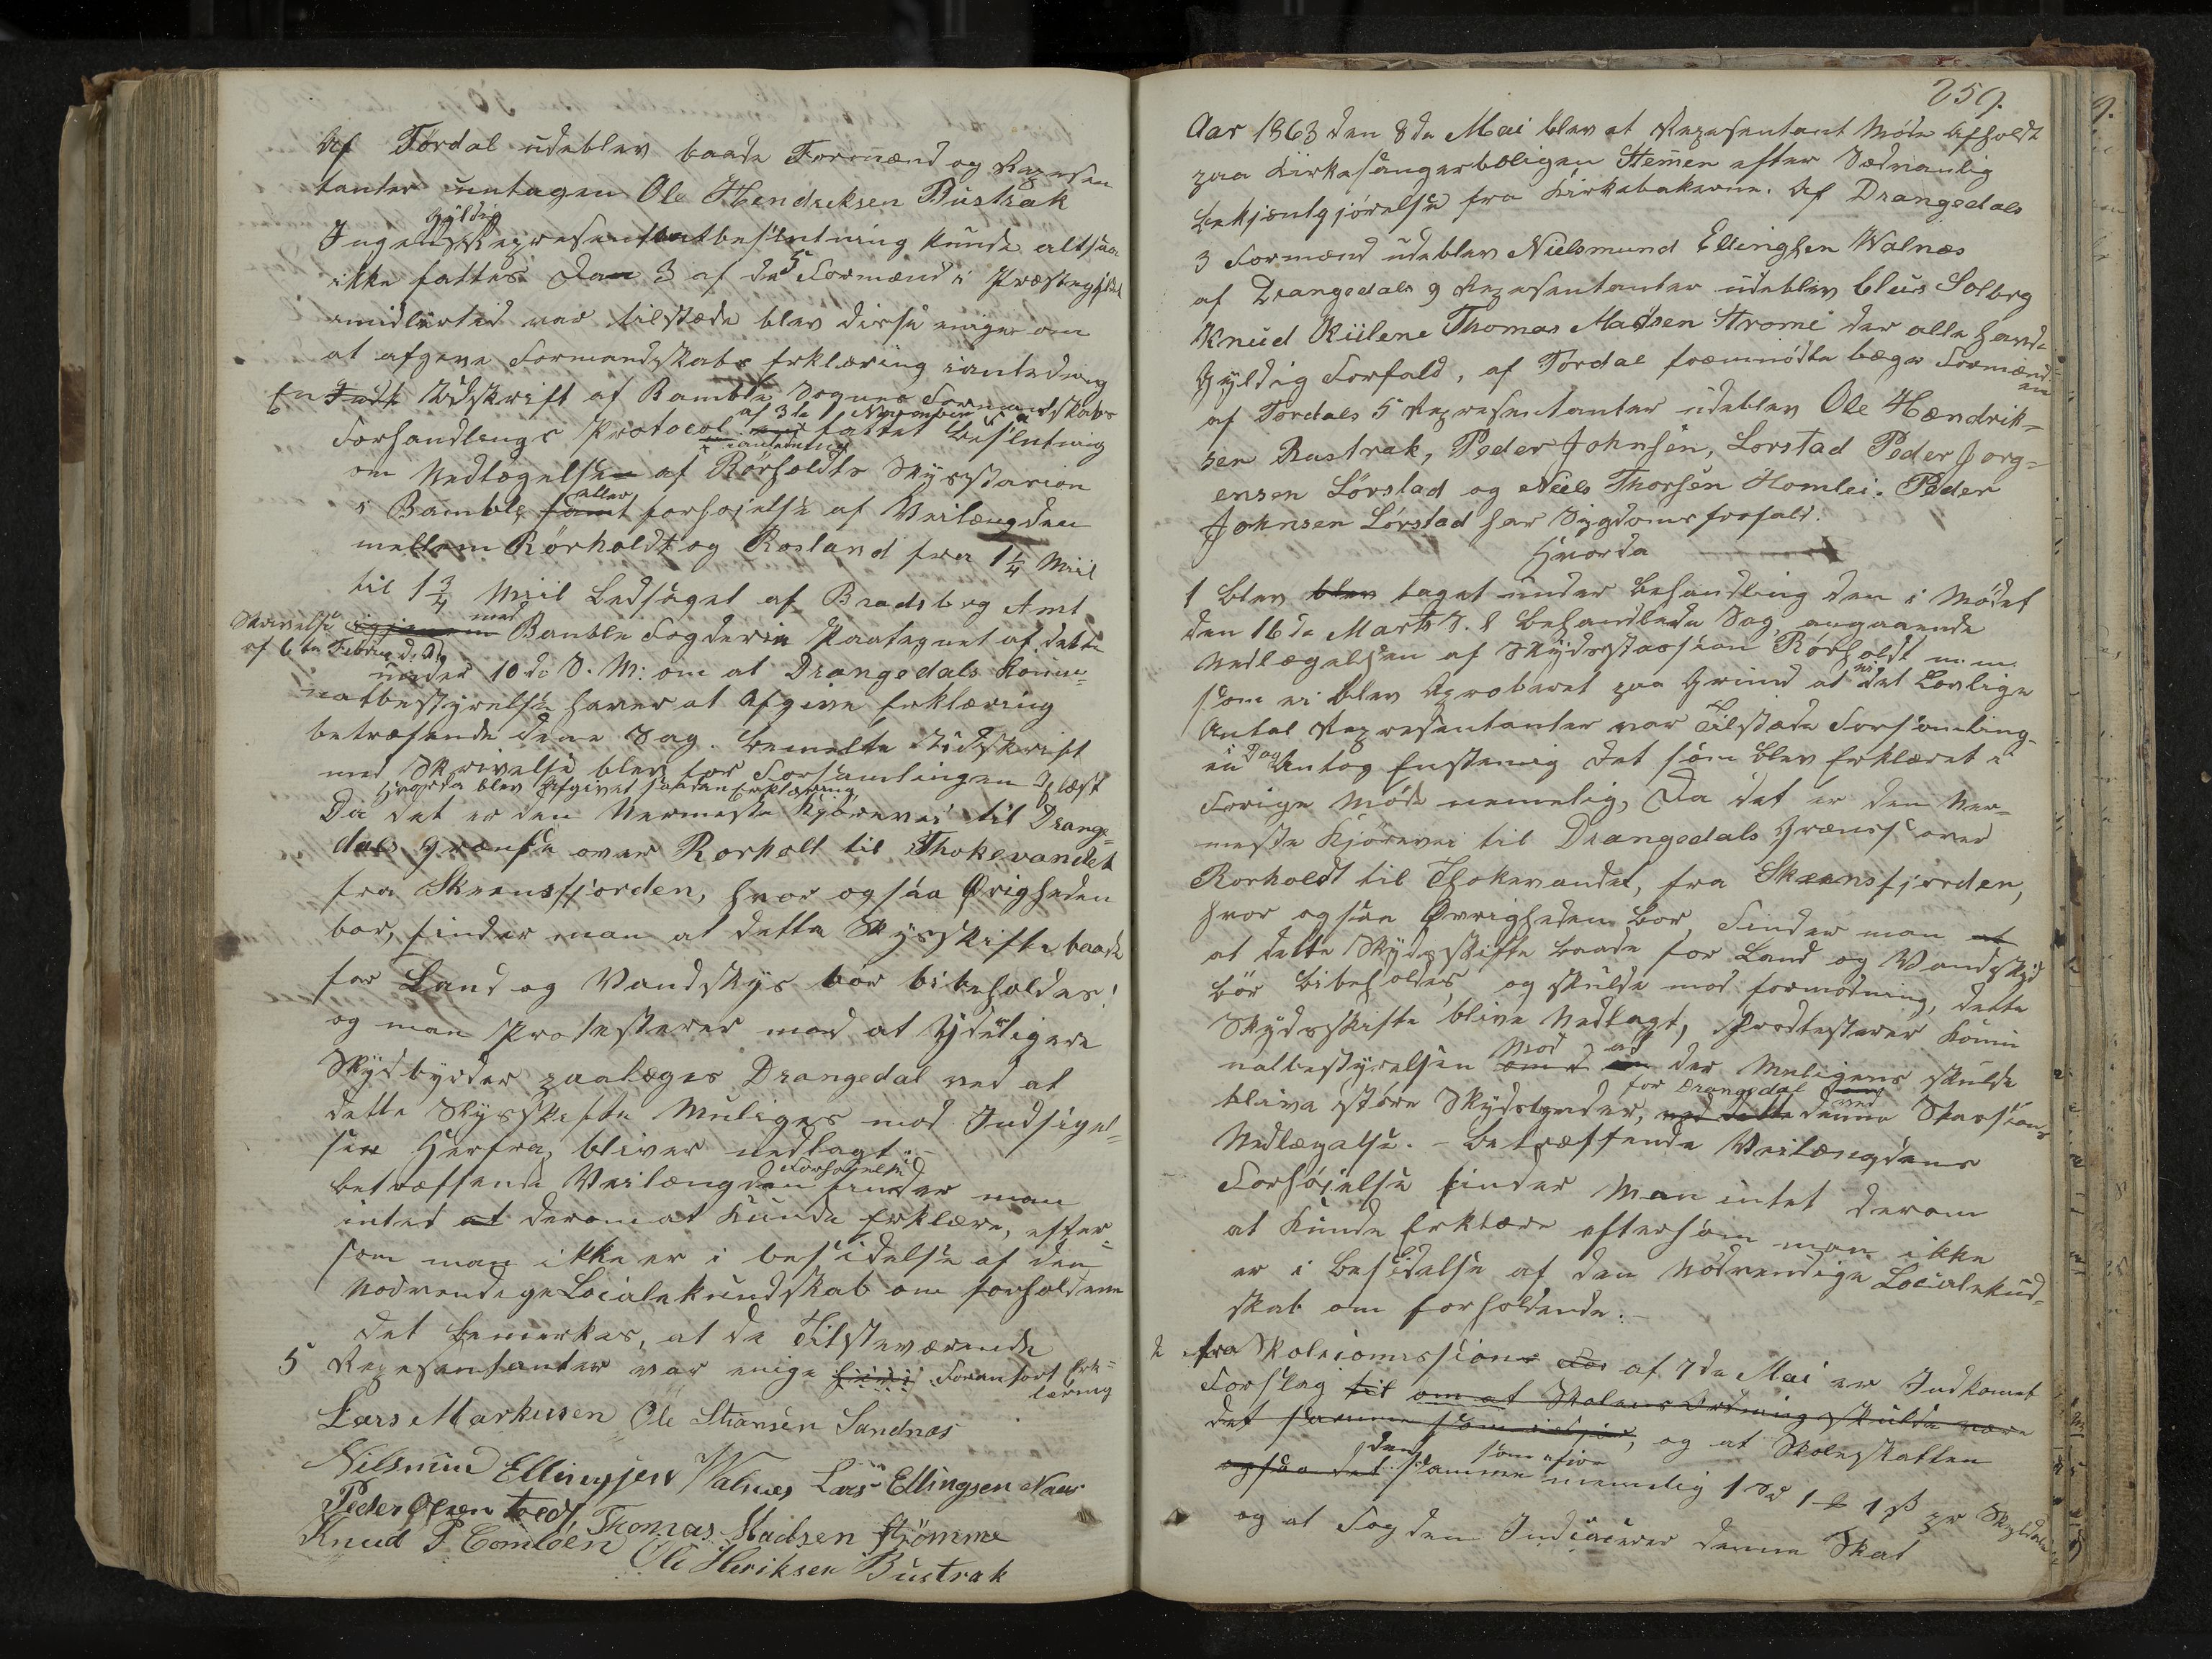 Af Tørdal udeblev baade Formænd og Repræsen
tanter undtagen Ole Hendreksen Bustrak
Ingen gyldig Repræsentantbeslutning kunde altsaa
ikke fattes. Da 3 af de 5 Formænd i Præstegjeldet
imidlertid var tilstæde blev disse enige om
at afgive Formandskabs Erklæring ianledning
En Udskrift af Bamble Sognes Formandskabs
Forhandlings Protocol af 3de November fattet Beslutning
om Nedlæggelse af Rørholdts Skysstation
i Bamble eller forhøielse af Veilængden
mellem Rørholdt og Rosland fra 1 1/4 Miil
til 1 3/4 Miil Ledsaget af Bradsberg Amt
Skrivelse af 6te Februar d. A. med Bamble Fogderie Paategnet af dette
under 10de D. M. om at Drangedals Komu=
nalbestyrelse haver at Afgive Erklæring
betræfende dene Sag. Bemelte Udskrift
med Skrivelse blev for Forsamlingen Oplæst
Hvorda blev Afgivet saadan Erklæring
Da det er den Nermeste Kjørevei til Drange=
dals Grænse over Rorholt til Thokevandet
fra Skeensfjorden, hvor ogsaa Øvrigheden
bor, finder man at dette Skysskifte baade
for Land og Vandskys bør bibeholdes!
og man Protesterer mod at Yderligere
Skydsbyrder paalægges Drangedal ved at
dette Skysskifte Muliges mod Indsigel=
sen Herfra, bliver nedlagt.-
betræffende Veilængden Forhøjelse finder man
intet at derom at kunde Erklære, efter=
som man ikke er i besidelse af den
nødvendige Localekundskab om forholdene
det bemerkes, at de Tilstæværende
5 Repesentanter var enige i Foranført Erk=
læring
Lars Markusen Ole Stiansen Sandnæs
Nilsmun Ellingsen Walnæs Lars Ellingsen Næs
Peder Olsen Thomas Madsen Strømme
Knud P.
Ole Heriksen Bustrak
259.
Aar 1863 den 8de Mai blev et Repesentant Møde Afholdt
paa Kirkesangerboligen Stemen efter Sedvanlig
Bekjentgjørelse fra Kirkebakerne. Af Drangedals
3 Formænd udeblev Nielsmund Ellingsen Walnæs
af Drangedals 9 Repesentanter udeblev Claus Solberg
Knud Kiilene Thomas Madsen Strome der alle havde
Gyldig Forfald, af Tørdal fremmødte begge Formænd=
ene
af Tørdals 5 Repesentanter udeblev Ole Hendrik=
sen Bustrak, Peder Johnsen, Lorstad Peder Jorg=
ensen Lørstad og Niels Thorsen Homlei. Peder
Johnsen Lørstad har Sygdoms forfald.
Hvorda
1 Blev blev taget under Behandling den i Mødet
den 16de Marts d. A. Behandlede Sag, angaaende
Nedlæggelsen af Skydsstassion Rørholdt m.m.
som ei blev Aproberet paa Grund at ei det Lovlige
Antal Repesentanter var Tilstæde Forsamling-
en i Dag Antog Enstemig det som blev Erklæret i
Forige Møde nemelig, Da det er den Ner=
meste Kjørevei til Drangedals Grænse over
Rorholdt til Thokevandet, fra Skeensfjorden,
hvor ogsaa Øvrigheden Bor, Finder man at
at dette Skydsskifte baade for Land og Vandskyds
bør Bibeholdes, og skulde mod formodning, dette
Skydsskifte blive Nedlagt, Prodtesterer Komu
nalbestyrelsen Mod at der Muligens skulde
blive større Skydsbyrder, for Drangedal ved denne Stassions
Nedlæggelse. - Betræffende Veilængdens
Forhøjelse finder Man intet derom
at kunde Erklære eftersom man ikke
er i Besidelse af den Nødvendige Localekund=
skab om forholdende.-
2 fra Skolecomissione af 7de Mai er Indkomet
Forslag til om at Skolens Ordning skulde være
det samme som ifjor, og at Skoleskatten
ogsaa det den samme som ifjor nemelig 1 Sd 1 # 1 ß pr Skylddaler
og at Fogden Indcasserer denne Skat